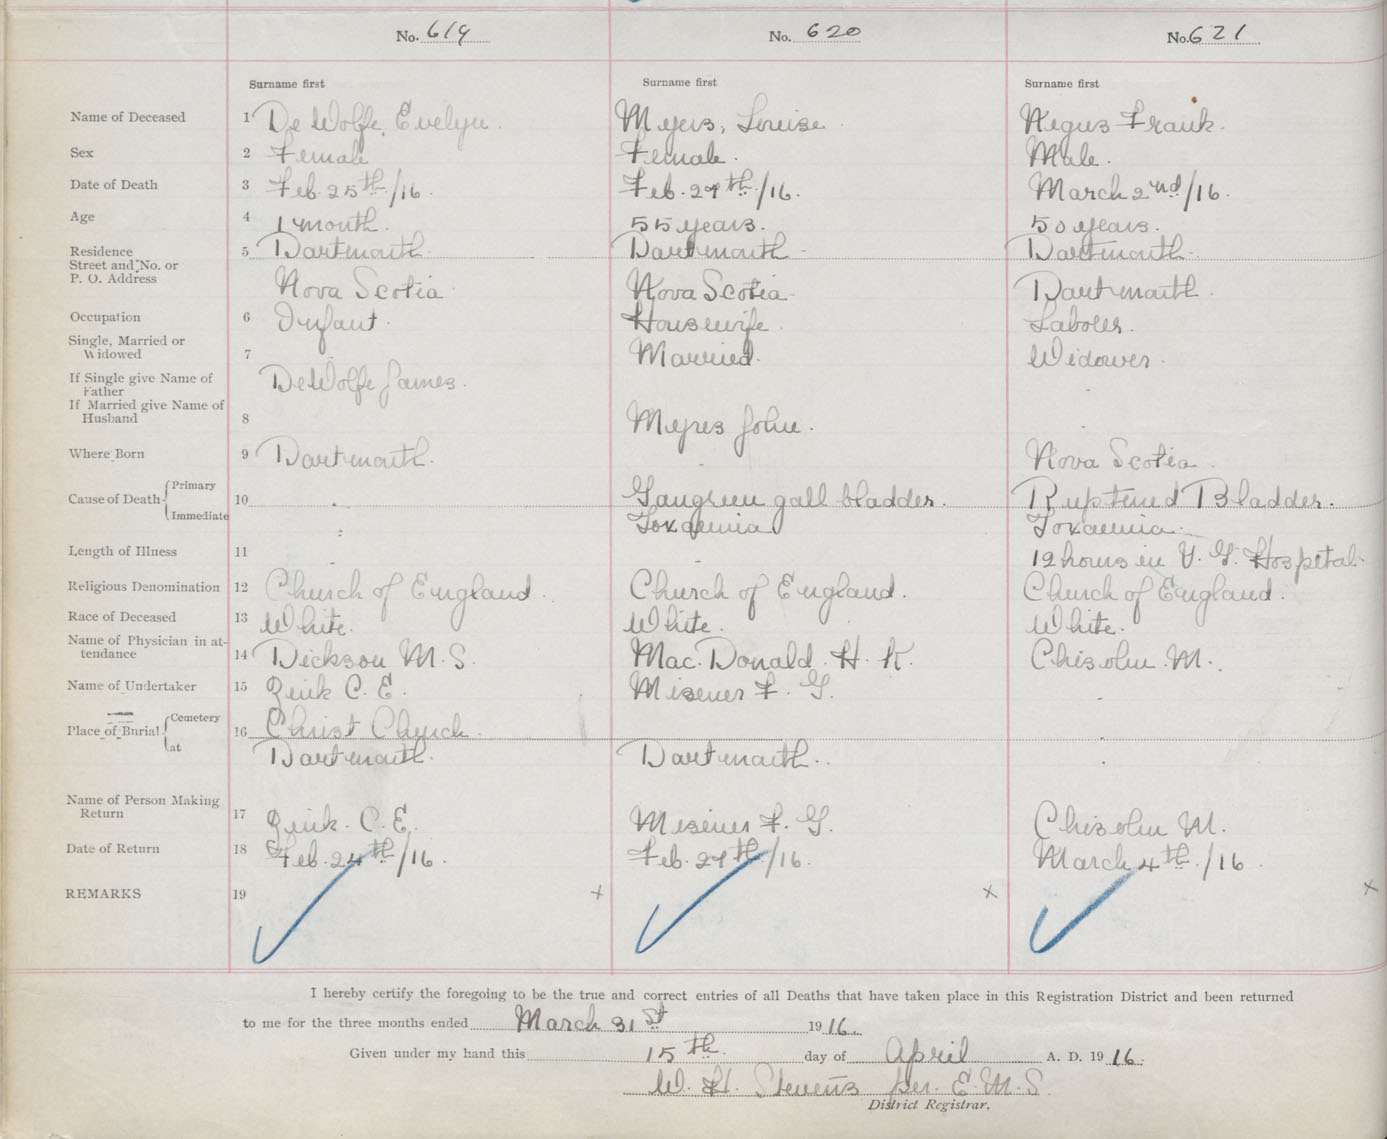 No. 619 No. 620 No. 621
Surname first Surname first Surname first
Name of Deceased 1 DeWolfe, Evelyn. Myers, Louise Negus Frank.
Sex 2 Female Female. Male.
Date of Death 3 Feb. 25th/16. Feb. 27th/16. March 2nd/16.
Age 4 1 month. 55 years. 50 years.
Residence 5 Dartmouth. Dartmouth. Dartmouth.
Street and No. or
P. O. Address Nova Scotia. Nova Scotia. Dartmouth.
Occupation 6 Infant. Housewife. Laborer.
Single, Married or
Widowed 7 Married. Widower.
If Single give Name of
Father DeWolfe James.
If Married give Name of
Husband 8 Myres John.
Where Born 9 Dartmouth. Nova Scotia.
Cause of Death Primary 10 Gangreen gall bladder. Ruptured Bladder.
Immediate Toxaemia Toxaemia.
Length of Illness 11 12 hours in V. G. Hospital.
Religious Denomination 12 Church of England. Church of England. Church of England.
Race of Deceased 13 White. White. White.
Name of Physician in at-
tendance 14 Dickson M. S. Mac. Donald. H. K. Chisolm. M.
Name of Undertaker 15 Zink C. E. Misener F. G.
Place of Burial Cemetery 16 Christ Church.
at Dartmouth. Dartmouth.
Name of Person Making
Return 17 Zink. C. E. Misener F. G. Chisolm M.
Date of Return 18 Feb. 24th/16. Feb. 27th/16. March 4th/16.
REMARKS 19 x x x
I hereby certify the foregoing to be the true and correct entries of all Deaths that have taken place in this Registration District and been returned
to me for the three months ended March 31st 1916.
Given under my hand this 15th. day of April A. D. 1916.
W. H. Stevens per. E. M. S.
District Registrar.